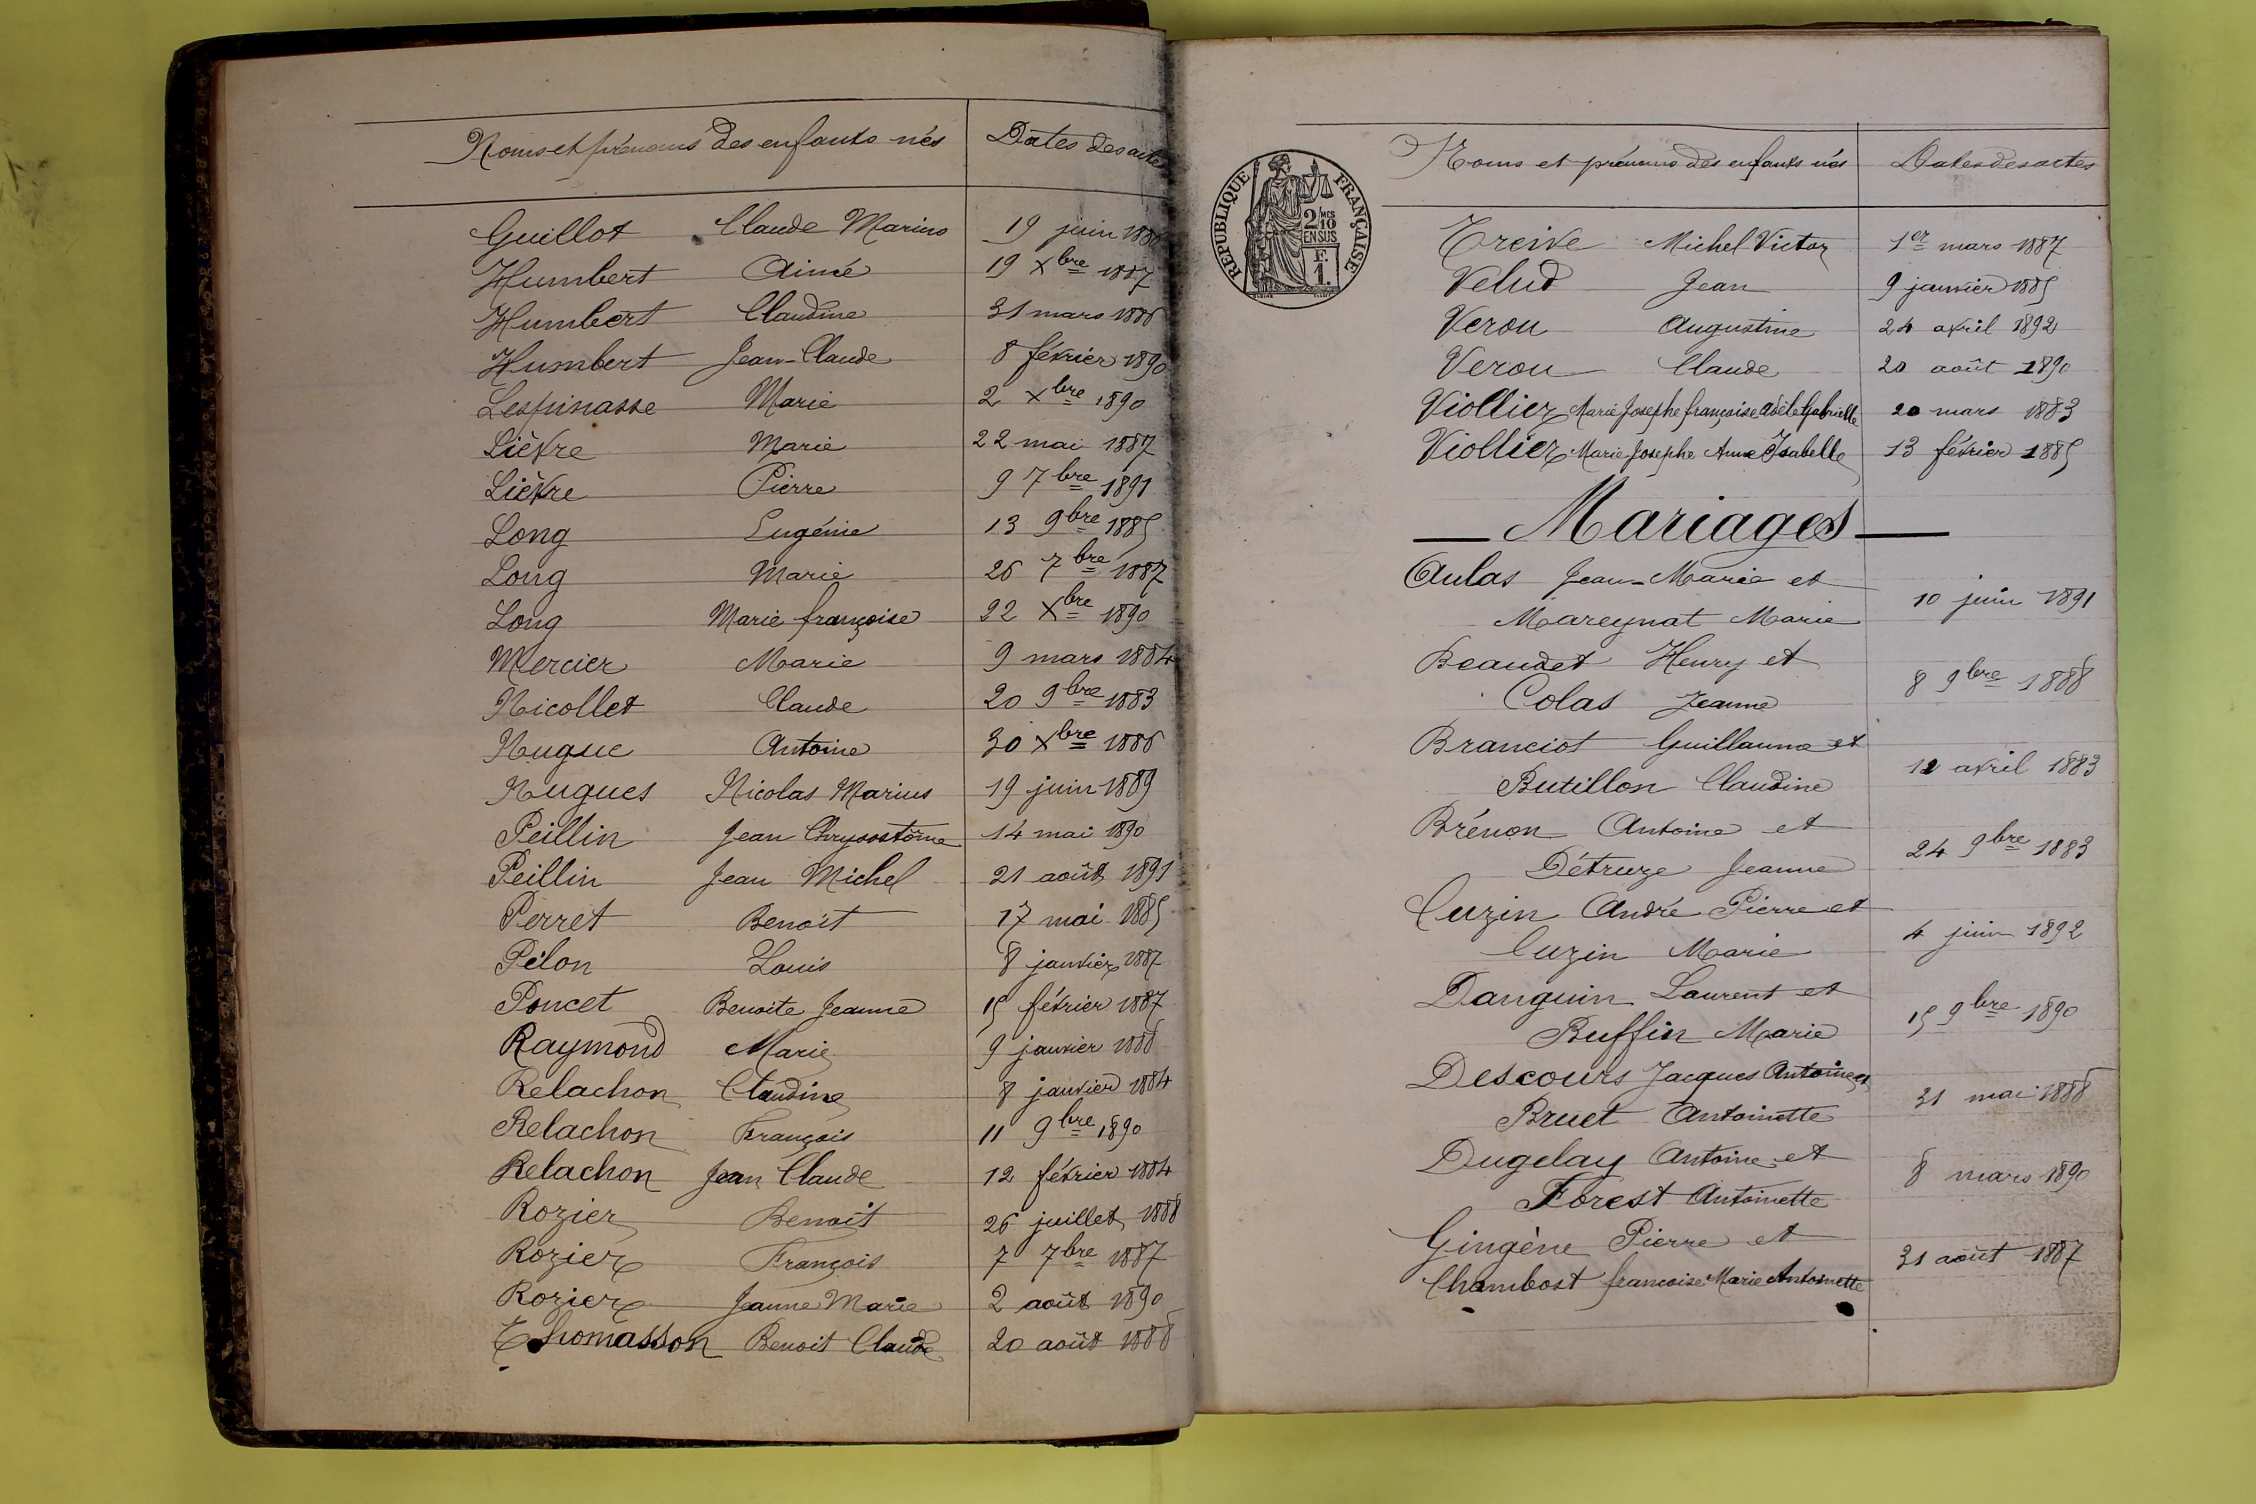 Noms et prénoms des enfants nés Dates des actes
Guillot Claude Marius 19 juin 1886
Humbert Aimé 19 Xbre 1887
Humbert Claudine 31 mars 1886
Humbert Jean-Claude 8 février 1890
Lespinasse Marie 2 Xbre 1890
Lièvre Marie 22 mai 1887
Lièvre Pierre 9 7bre 1891
Long Eugénie 13 9bre 1885
Long Marie 26 7bre 1887
Long Marie françoise 22 Xbre 1890
Mercier Marie 9 mars 1884
Nicollet Claude 20 9bre 1883
Nugue Antoine 30 Xbre 1886
Nugues Nicolas Marius 19 juin 1889
Peillin Jean Chrysostôme 14 mai 1890
Peillin Jean Michel 21 août 1891
Perret Benoit 17 mai 1885
Pilon Louis 8 janvier 1887
Poncet Benoite Jeanne 15 février 1887
Raymond Marie 9 janvier 1888
Relachon Claudine 8 janvier 1884
Relachon François 11 9bre 1890
Relachon Jean Claude 12 février 1884
Rozier Benoit 26 juillet 1888
Rozier François 7 7bre 1887
Rozier Jeanne Marie 2 août 1890
Thomasson Benoit Claude 20 août 1888
RÉPUBLIQUE FRANÇAISE
2/10 MES
EN SUS
F.
1.
Noms et prénoms des enfants nés Dates des actes
Treive Michel Victor 1er mars 1887
Velud Jean 9 janvier 1885
Verou Augustine 24 avril 1892
Verou Claude 20 août 1890
Viollier Marie Josephe françoise Adèle Gabrielle 20 mars 1883
Viollier Marie Josephe Anne Isabelle 13 février 1885
Mariages
Aulas Jean-Marie et
Mareynat Marie 10 juin 1891
Beaudet Henry et
Colas Jeanne 8 9bre 1888
Branciot Guillaume et
Butillon Claudine 12 avril 1883
Brénon Antoine et
Détruze Jeanne 24 9bre 1883
Cuzin André Pierre et
Cuzin Marie 4 juin 1892
Danguin Laurent et
Buffin Marie 15 9bre 1890
Descours Jacques Antoine et
Bruet Antoinette 31 mai 1888
Dugelay Antoine et
Forest Antoinette 8 mars 1890
Gingène Pierre et
Chambost françoise Marie Antoinette 31 août 1887